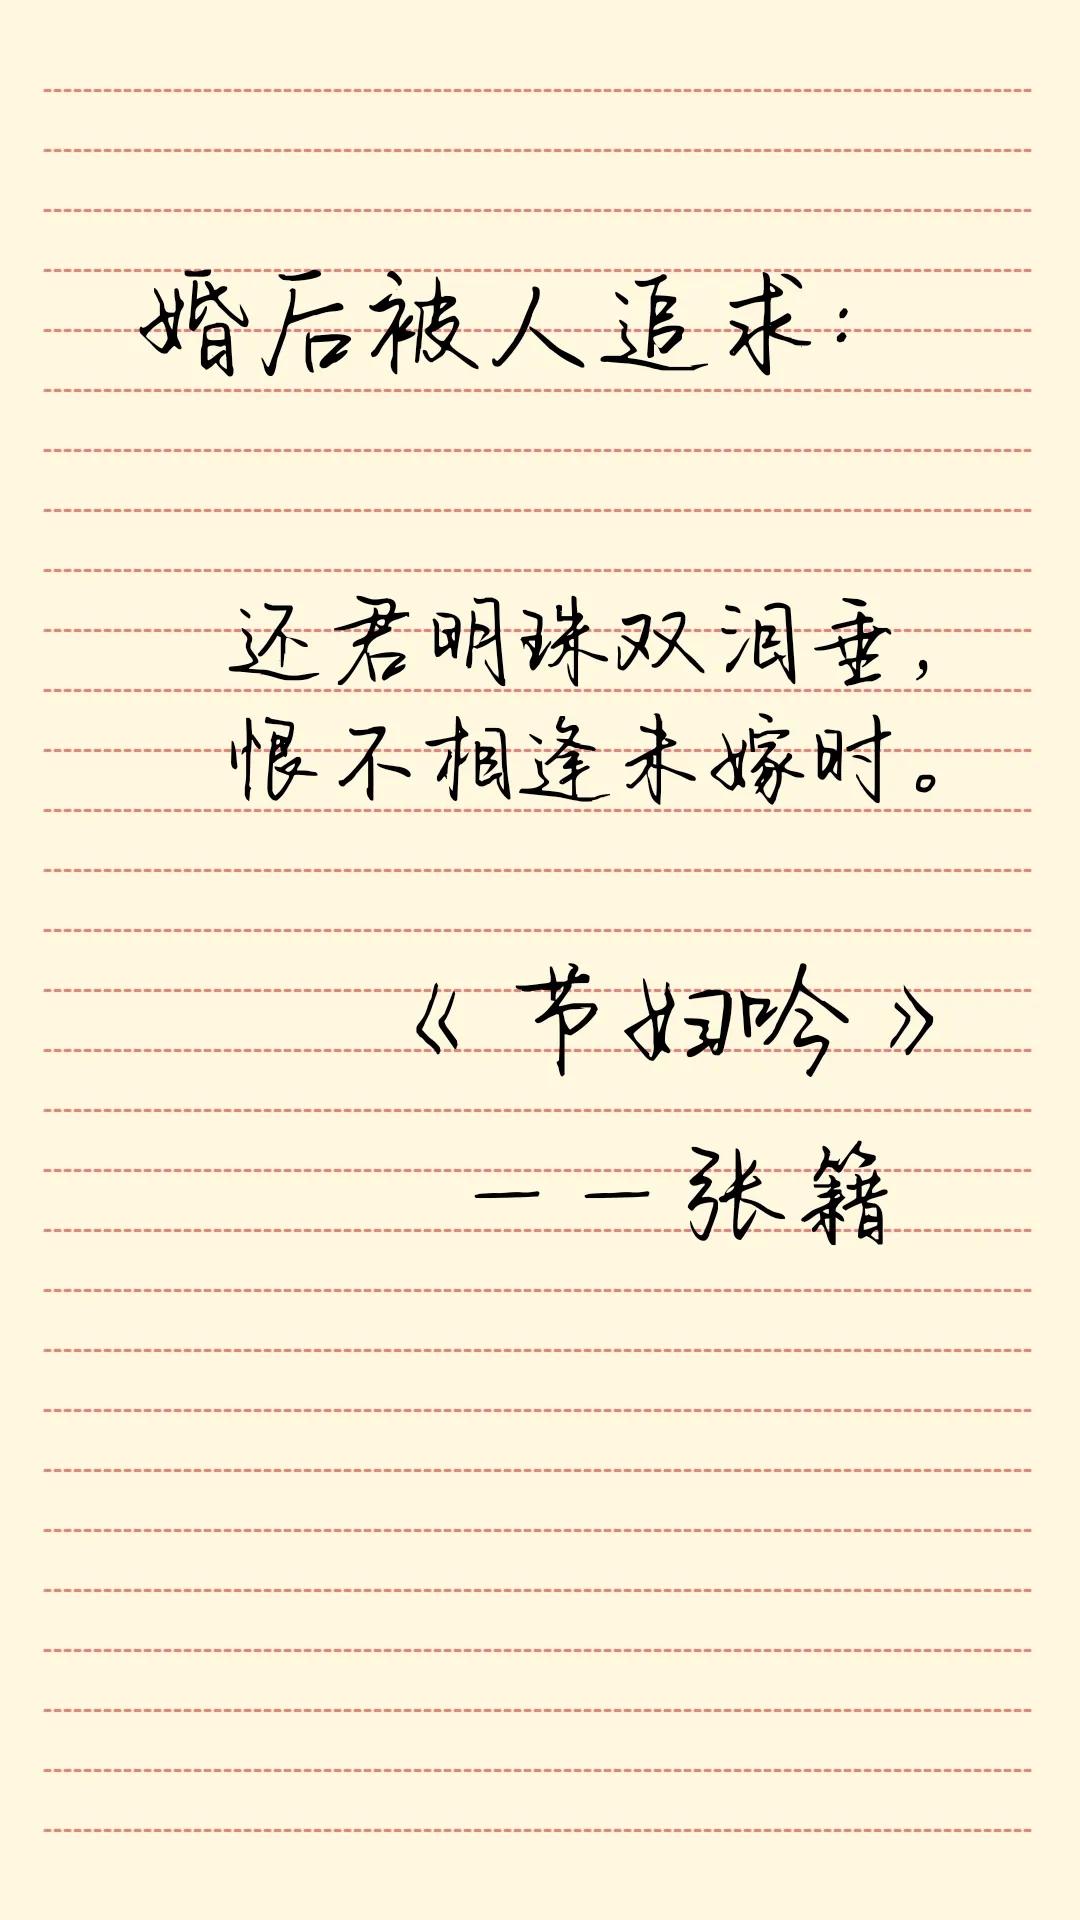 婚后被人追求：
还君明珠双泪垂，
恨不相逢未嫁时。
《节妇吟》
——张籍